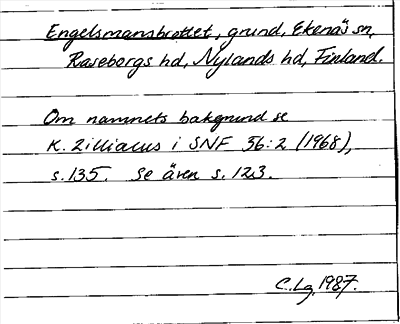 Engelsmansbrottet, grund, Ekenäs sn,
Raseborgs hd, Nylands hd, Finland.
Om namnets bakgrund se
K. Zilliacus i SNF 56:2 (1968),
s. 135. Se även s. 123.
C. Lg. 1987.